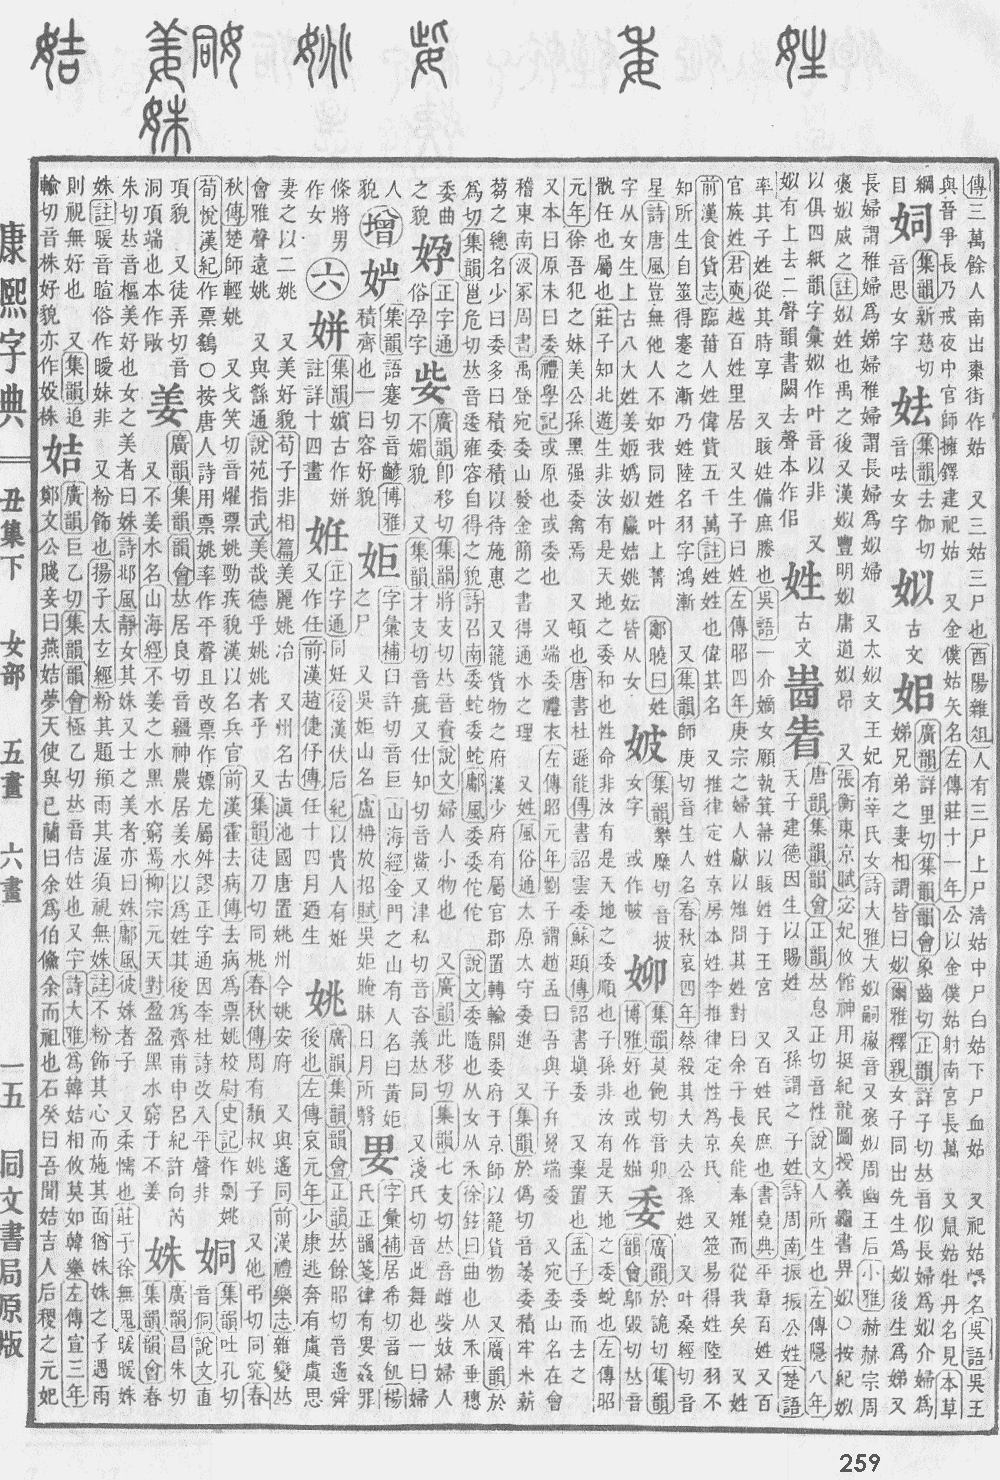 傳三萬餘人南出棗街作姑 又三姑三尸也酉陽雜俎人有三尸上尸淸姑中尸白姑下尸血姑 又祀姑幡名吳語吳王
與晉爭長乃戒夜中官師擁鐸建祀姑 又金僕姑矢名左傳莊十一年公以金僕姑射南宮長萬 又鼠姑牡丹名見本草
綱目 集韻新慈切音思女字 集韻去伽切音呿女字 姒 古文 廣韻詳里切集韻韻會象齒切正韻詳子切𠀤音似長婦爲姒介婦爲娣兄弟之妻相謂皆曰姒爾雅釋親女子同出先生爲姒後生爲娣又
長婦謂稚婦爲娣婦稚婦謂長婦爲姒婦 又太姒文王妃有莘氏女詩大雅大姒嗣徽音又褒姒周幽王后小雅赫赫宗周
褒姒烕之註姒姓也禹之後又漢姒豐明姒庸道姒昂 又張衡東京賦宓妃攸館神用挺紀龍圖授羲龜書畀姒○按紀姒
以俱四紙韻字彙姒作叶音以非 又姒有上去二聲韻書闕去聲本作佀 姓 古文 唐韻集韻韻會正韻𠀤息正切音性說文人所生也左傳隱八年天子建德因生以賜姓 又孫謂之子姓詩周南振振公姓楚語
率其子姓從其時享 又賅姓備庶媵也吳語一介嫡女願執箕帚以賅姓于王宮 又百姓民庶也書堯典平章百姓又百
官族姓君奭越百姓里居 又生子曰姓左傳昭四年庚宗之婦人獻以雉問其姓對曰余子長矣能奉雉而從我矣 又姓
前漢食貨志臨菑人姓偉貲五千萬註姓姓也偉其名 又推律定姓京房本姓李推律定性爲京氏 又筮易得姓陸羽不
知所生自筮得蹇之漸乃姓陸名羽字鴻漸 又集韻師庚切音生人名春秋哀四年蔡殺其大夫公孫姓 又叶桑經切音
星詩唐風豈無他人不如我同姓叶上菁 鄭曉曰姓字从女生上古八大姓姜姬嬀姒嬴姞姚妘皆从女 㛅 女字 集韻攀糜切音披 或作㿱 媌 集韻莫飽切音卯博雅好也或作媌 委 廣韻於詭切集韻韻會鄔毀切𠀤音
骩任也屬也莊子知北遊生非汝有是天地之委和也性命非汝有是天地之委順也子孫非汝有是天地之委蛻也左傳昭
元年徐吾犯之妹美公孫黑强委禽焉 又頓也唐書杜遜能傳書詔雲委蘇頲傳詔書塡委 又棄置也孟子委而去之
又本曰原末曰委禮學記或原也或委也 又端委禮衣左傳昭元年劉子謂趙孟曰吾與子弁冕端委 又宛委山名在會
稽東南汲冢周書禹登宛委山發金簡之書得通水之理 又姓風俗通太原太守委進 又集韻於僞切音萎委積牢米薪
芻之總名少曰委多曰積委積以待施惠 又籠貨物之府漢少府有屬官郡置轉輸開委府于京師以籠貨物 又廣韻於
爲切集韻邕危切𠀤音逶雍容自得之貌詩召南委蛇委蛇鄘風委委佗佗 說文委隨也从女从禾徐鉉曰曲也从禾垂穗
委曲之貌 㜽 俗孕字 正字通 㛰 廣韻卽移切集韻將支切𠀤音貲說文婦人小物也 又廣韻此移切集韻七支切𠀤音雌婦人
不媚貌 又集韻才支切音疵又仕知切音 又津私切音咨義𠀤同 又淺氏切音此舞也一曰婦
人貌 增 集韻語蹇切音齴博雅積齊也一曰容好貌 姖 字彙補臼許切音巨 山海經金門之山有人名曰黃姖之尸 又吳姖山名盧柟放招賦吳姖晻昧日月所翳 字彙補居希切音飢楊氏正韻箋律有妟姦罪
條將男作女 六 姘 集韻嬪古作姘註詳十四畫 妊 正字通同妊後漢伏后紀以貴人有妊 又作任前漢趙倢伃傳任十四月廼生 姚 廣韻集韻韻會正韻𠀤餘昭切音遙舜後也左傳哀元年少康逃奔有虞虞思
妻之以二姚 又美好貌荀子非相篇美麗姚冶 又州名古滇池國唐置姚州今姚安府 又與遙同前漢禮樂志雜變𠀤
會雅聲遠姚 又與繇通說苑指武美哉德乎姚姚者乎 又集韻徒刀切同桃春秋傳周有頹叔姚子 又他弔切同窕春
秋傳楚師輕姚 又弋笑切音燿票姚勁疾貌漢以名兵官前漢霍去病傳去病爲票姚校尉史記作剽姚
荀悅漢紀作票鷂○按唐人詩用票姚率作平聲且改票作嫖尤屬舛謬正字通因李杜詩改入平聲非 姛 集韻吐孔切音侗說文直
項貌 又徒弄切音洞項端也本作䁎 姜 廣韻集韻韻會𠀤居良切音疆神農居姜水以爲姓其後爲齊甫申呂紀許向芮 又不姜水名山海經不姜之水黑水窮焉柳宗元天對盈盈黑水窮于不姜 姝 廣韻昌朱切集韻韻會春
朱切𠀤音樞美好也女之美者曰姝詩邶風靜女其姝又士之美者亦曰姝鄘風彼姝者子 又柔懦也莊子徐無鬼暖暖姝
姝註暖音暄俗作曖姝非 又粉飾也揚子太玄經粉其題頯雨其渥須視無姝註不粉飾其心而施其面猶姝姝之子遇雨
則視無好也 又集韻追輸切音株好貌亦作姝 姞 廣韻巨乙切集韻韻會極乙切𠀤音佶姓也又字詩大雅爲韓姞相攸莫如韓樂左傳宣三年鄭文公賤妾曰燕姞夢天使與已蘭曰余爲伯鯈余而祖也石癸曰吾聞姞吉人后稷之元妃
康熙字典
丑集下 女部 五畫 六畫
一五
同文書局原版
259